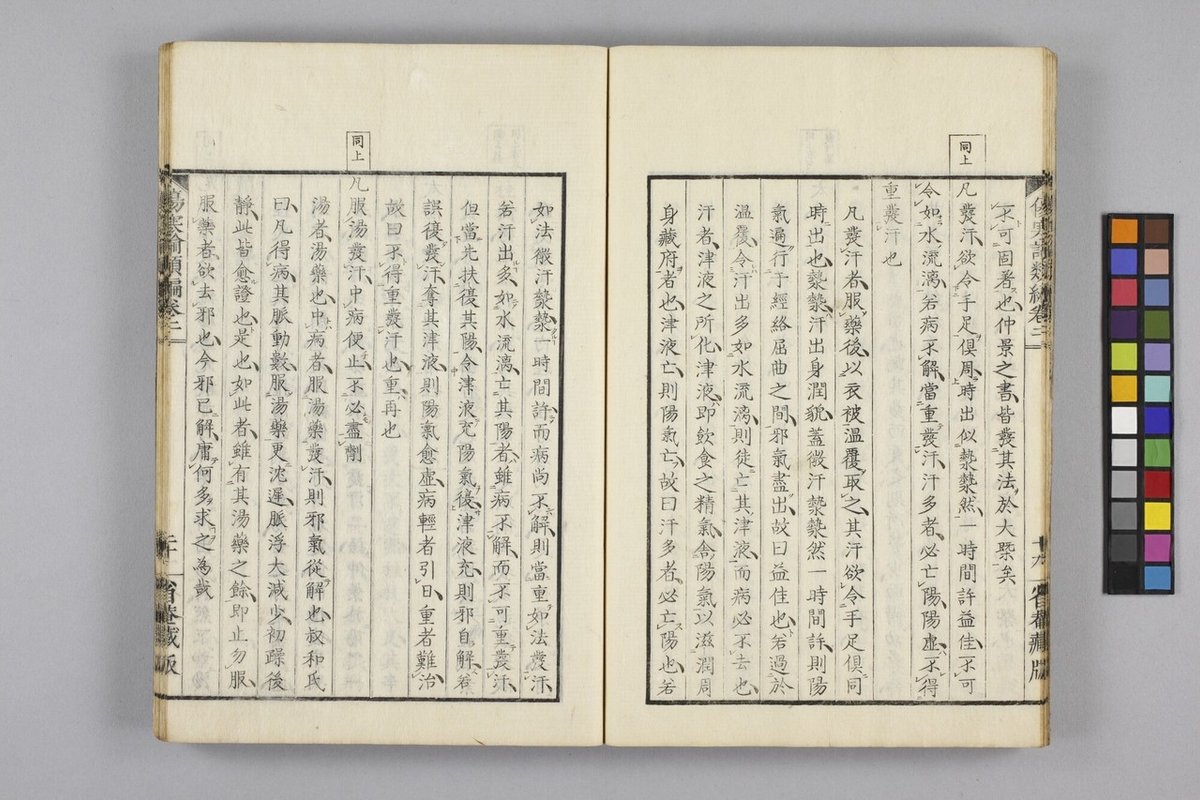 傷寒論類編卷二
十九
省菴藏版
不可固者也仲景之書皆發其法於大槩矣
同上
凡發汗欲令手足俱周時出似漐漐然一時間許益佳不可
令如水流漓若病不解當重發汗汗多者必亡陽陽虛不得
重發汗也
凡發汗者服藥後以衣被溫覆取之其汗欲令手足俱同
時出也漐漐汗出身潤貌蓋微汗漐漐然一時間許則陽
氣遍行于經絡屈曲之間邪氣盡出故曰益佳也若過於
溫覆令汗出多如水流漓則徒亡其津液而病必不去也
汗者津液之所化津液即飲食之精氣舍陽氣以滋潤周
身藏府者也津液亡則陽氣亡故曰汗多者必亡陽也若
如法微汗漐漐一時間許而病尚不解則當重如法發汗
若汗出多如水流漓亡其陽者雖病不解而不可重發汗
但當先扶復其陽令津液充陽氣復津液充則邪自解若
誤復發汗奪其津液則陽氣愈虛病輕者引日重者難治
故曰不得重發汗也重再也
同上
凡服湯發汗中病便止不必盡劑
湯者湯藥也中病者服湯藥發汗則邪氣從解也叔和氏
曰凡得病其脈動數服湯藥更沈遲脈浮大減少初躁後
靜此皆愈證也是也如此者雖有其湯藥之餘即止勿服
服藥者欲去邪也今邪已解庸何多求之為哉
傷寒論類編卷二
二十
省菴藏版